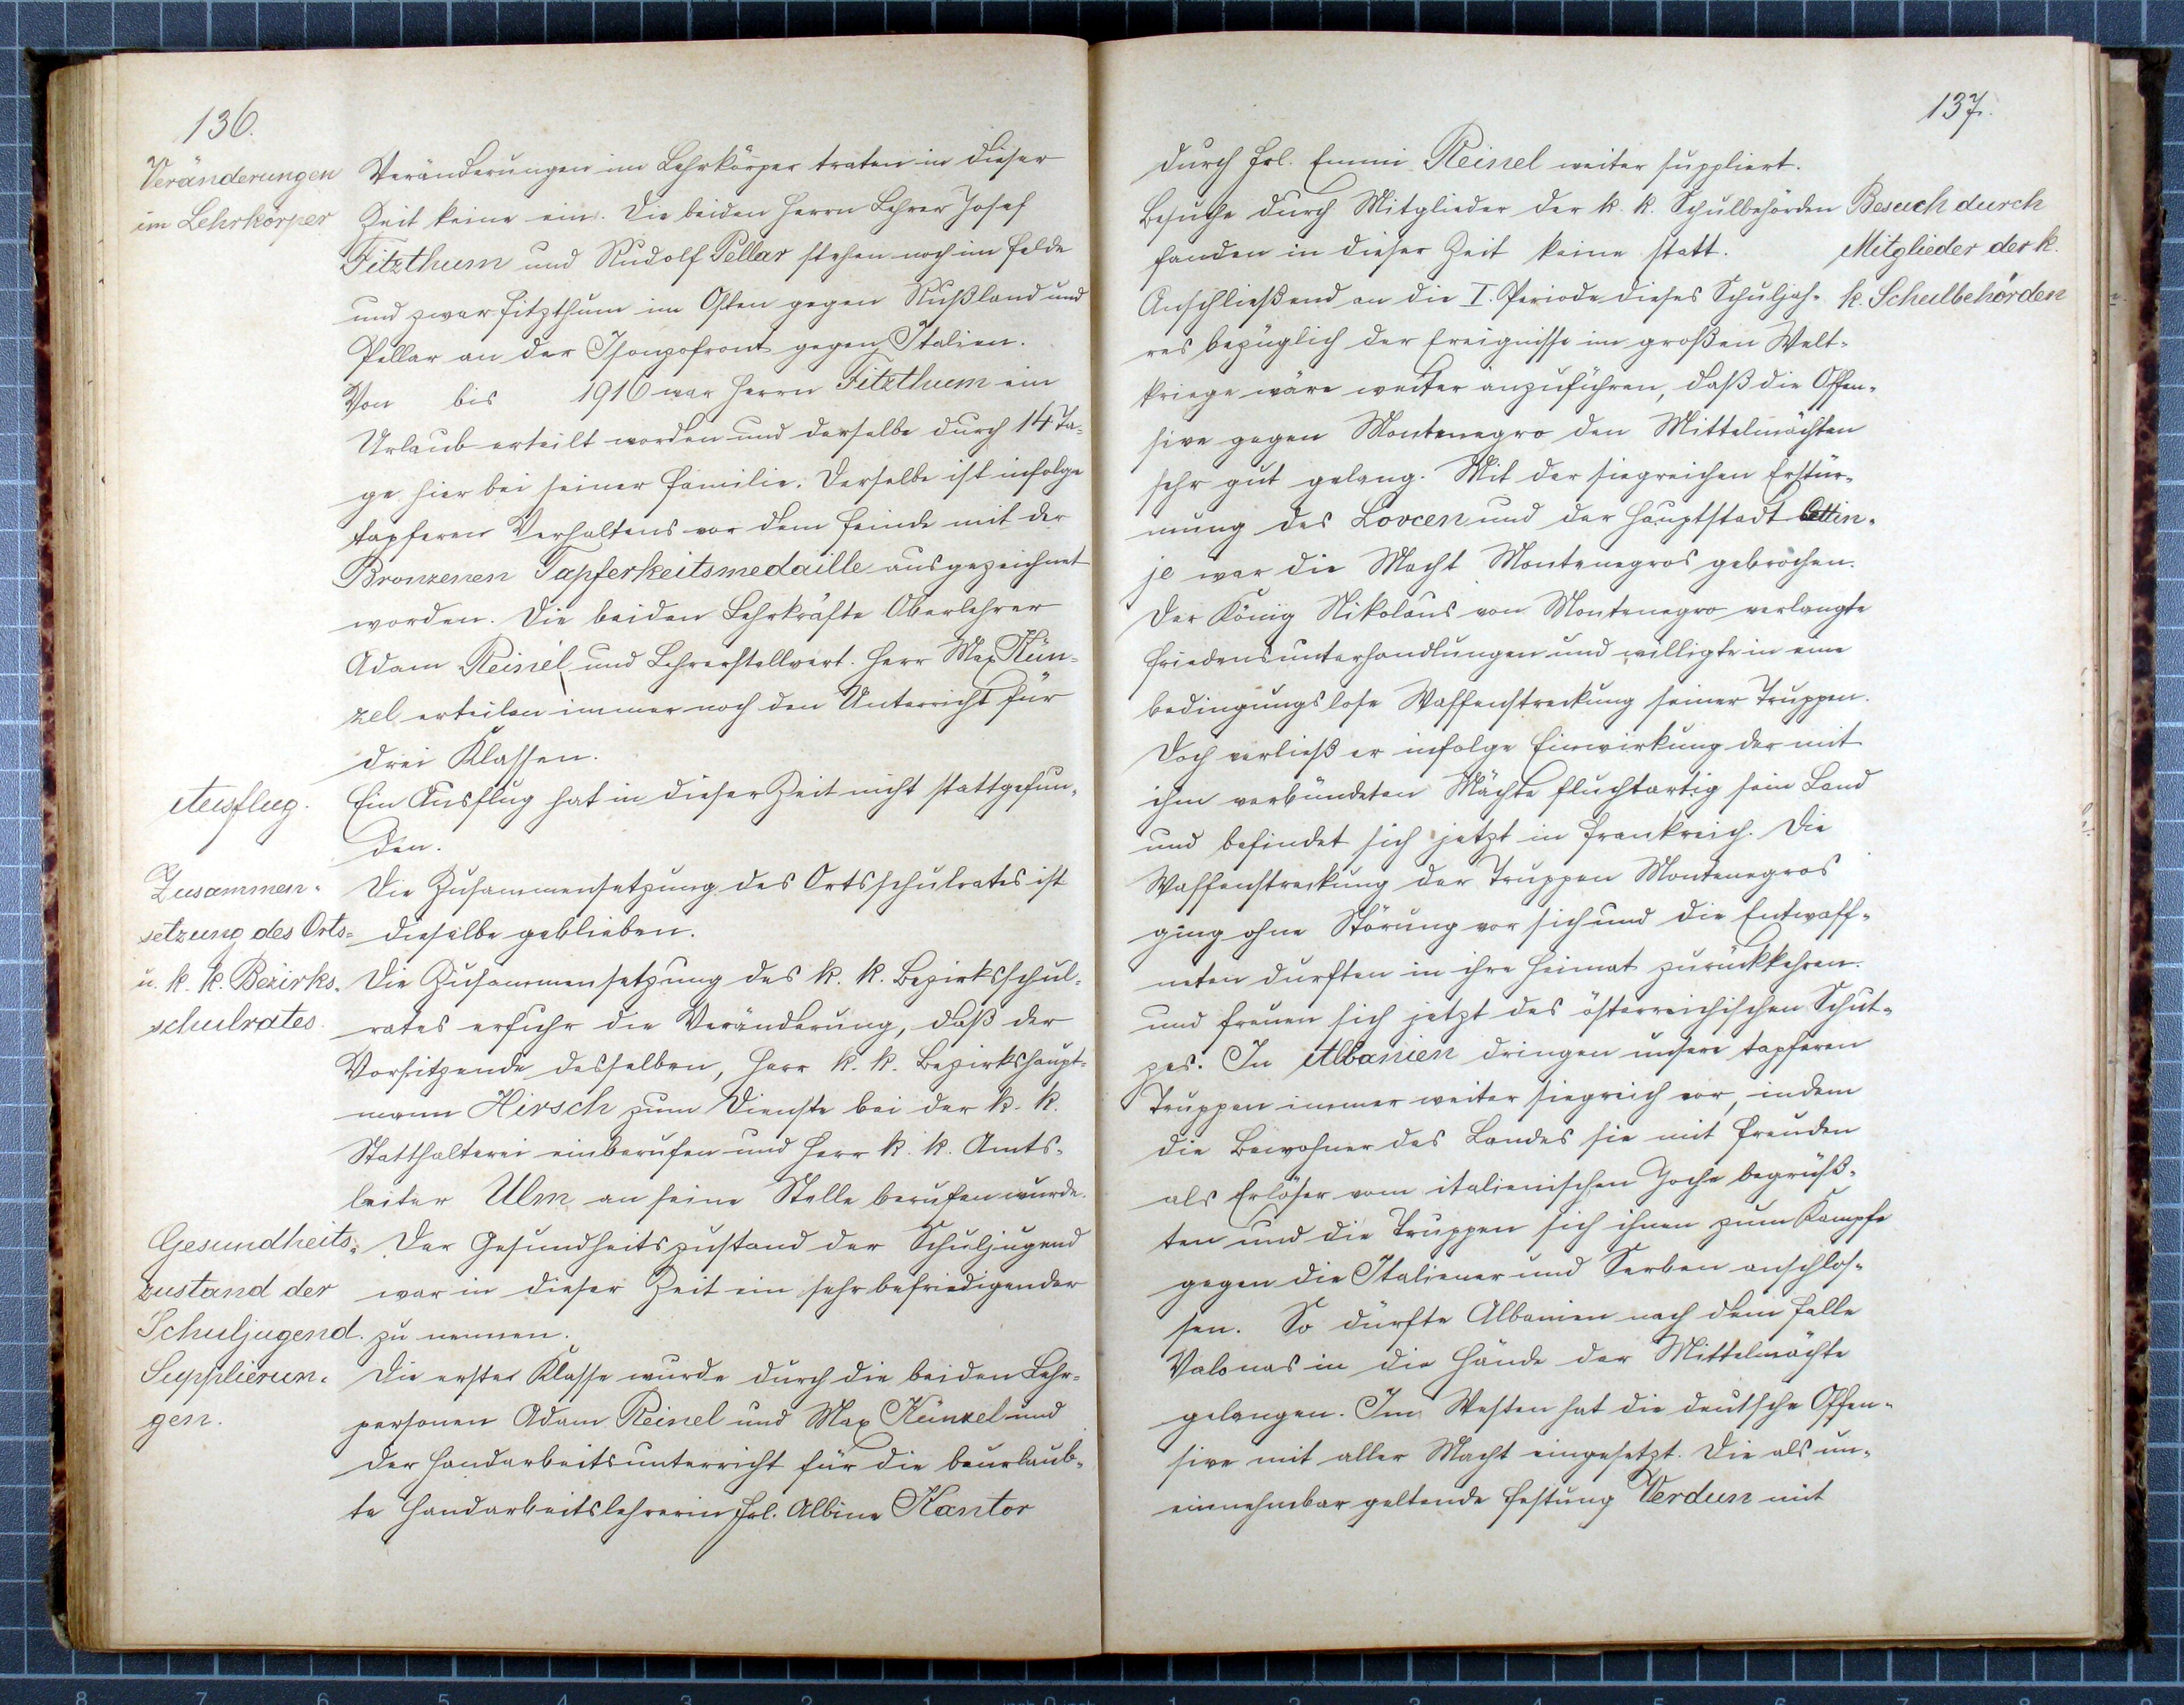 136.
Veränderungen
im Lehrkörper
Veränderungen im Lehrkörper traten in dieser
Zeit keine ein. Die beiden Herrn Lehrer Josef
Fitzthum und Rudolf Pellar stehen noch im Felde
und zwar Fitzthum im Osten gegen Rußland und
Pellar an der Isonzofront gegen Italien.
Von bis 1916 war Herrn Fitzthum ein
Urlaub erteilt worden und derselbe durch 14 Ta-
ge hier bei seiner Familie. Derselbe ist infolge
tapferen Verhaltens vor dem Feinde mit der
Bronzenen Tapferkeitsmedaille ausgezeichnet
worden. Die beiden Lehrkräfte Oberlehrer
Adam Reinel und Lehrerstellvert. Herr Max Kün-
zel erteilen immer noch den Unterricht für
drei Klassen.
Ausflug.
Ein Ausflug hat in dieser Zeit nicht stattgefun-
den.
Zusammen-
setzung des Orts-
u. k. k. Bezirks-
schulrates.
Die Zusammensetzung des Ortsschulrates ist
dieselbe geblieben.
Die Zusammensetzung des k. k. Bezirksschul-
rates erfuhr die Veränderung, daß der
Vorsitzende desselben, Herr k. k. Bezirkshaupt-
mann Hirsch zum Dienste bei der k. k.
Statthalterei einberufen und Herr k. k. Amts-
leiter Ulm an seine Stelle berufen wurde.
Gesundheits-
zustand der
Schuljugend.
Der Gesundheitszustand der Schuljugend
war in dieser Zeit ein sehr befriedigender
zu nennen.
Supplierun-
gen.
Die erste Klasse wurde durch die beiden Lehr-
personen Adam Reinel und Max Künzel und
der Handarbeitsunterricht für die beurlaub-
te Handarbeitslehrerin Frl. Albine Kantor
137.
durch Frl. Emmi Reinel weiter suppliert.
Besuch durch
Mitglieder der k.
k. Schulbehörden
Besuche durch Mitglieder der k. k. Schulbehörden
fanden in dieser Zeit keine statt.
Anschließend an die I. Periode dieses Schuljah-
res bezüglich der Ereignisse im großen Welt-
kriege wäre weiter anzuführen, daß die Offen-
sive gegen Montenegro den Mittelmächten
sehr gut gelang. Mit der siegreichen Erstür-
mung des Lovcen und der Hauptstadt Cettin-
je war die Macht Montenegros gebrochen.
Der König Nikolaus von Montenegro verlangte
Friedensunterhandlungen und willigte in eine
bedingungslose Waffenstreckung seiner Truppen.
Doch verließ er infolge Einwirkung der mit
ihm verbündeten Mächte fluchtartig sein Land
und befindet sich jetzt in Frankreich. Die
Waffenstreckung der Truppen Montenegros
ging ohne Störung vor sich und die Entwaff-
neten durften in ihre Heimat zurückkehren.
und freuen sich jetzt des österreichischen Schut-
zes. In Albanien dringen unsere tapferen
Truppen immer weiter siegreich vor, indem
die Bewohner des Landes sie mit Freuden
als Erlöser vom italienischen Joche begrüß-
ten und die Truppen sich ihnen zum Kampfe
gegen die Italiener und Serben anschlos-
sen. So dürfte Albanien nach dem Falle
Valonas in die Hände der Mittelmächte
gelangen. Im Westen hat die deutsche Offen-
sive mit aller Macht eingesetzt. Die als un-
einnehmbar geltende Festung Verdun mit